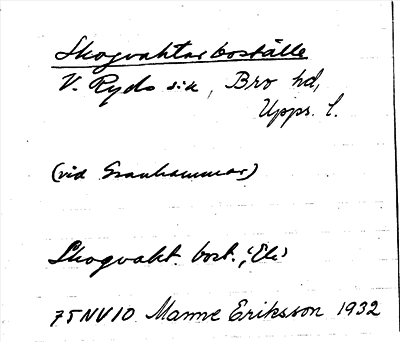 Skogvaktarboställe
V. Ryds sn, Bro hd,
Upps. l.
(vid Granhammar)
Skogvakt. bost.
75NV10 Manne Eriksson 1932